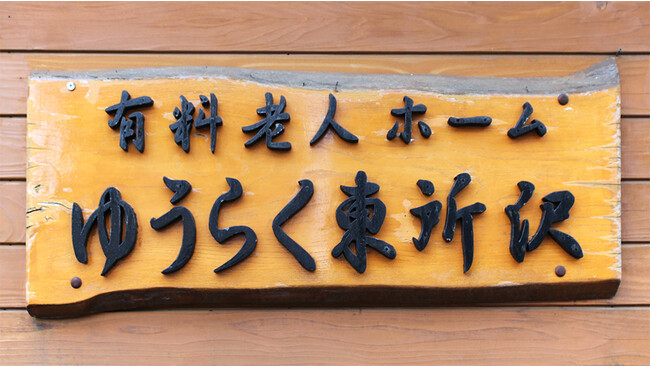 有料老人ホーム
ゆうらく東所沢